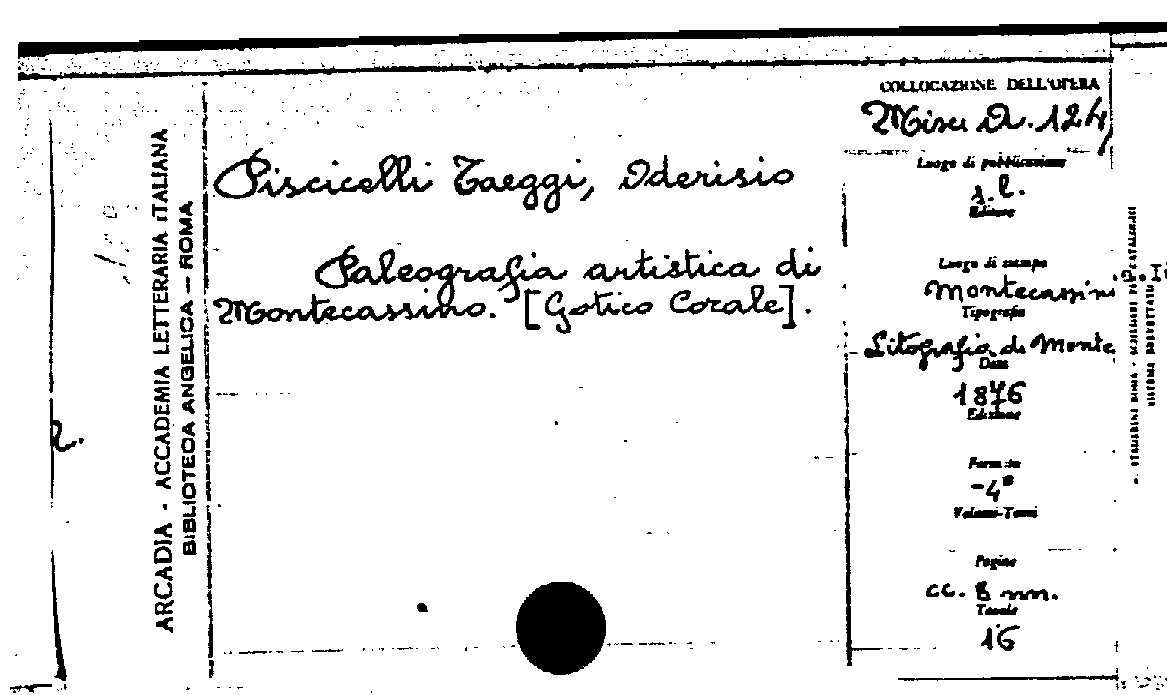 ARCADIA - ACCADEMIA LETTERARIA ITALIANA
BIBLIOTECA ANGELICA — ROMA
Piscicelli Taeggi, Oderisio
Paleografia artistica di
Montecassino. [Gotico Corale].
COLLOCAZIONE DELL'OPERA
Misc. A. 124
Luogo di pubblicazione
s.l.
Editore
Luogo di stampa
Montecassino
Tipografia
Litografia di Monte
Data
1876
Edizione
Formato
-4°
Volumi-Tomi
Pagine
cc. 8 nn.
Tavole
16